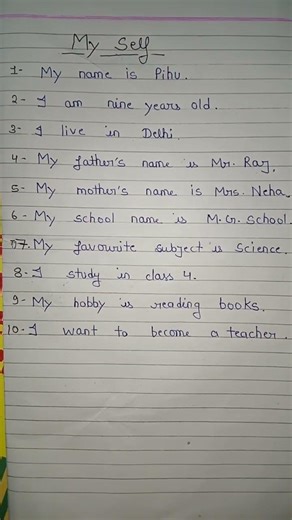 My Self
1- My name is Pihu.
2- I am nine years old.
3- I live in Delhi.
4- My father's name is Mr. Raj.
5- My mother's name is Mrs. Neha.
6- My school name is M.G. School.
7. My favourite subject is Science.
8- I study in class 4.
9- My hobby is reading books.
10- I want to become a teacher.